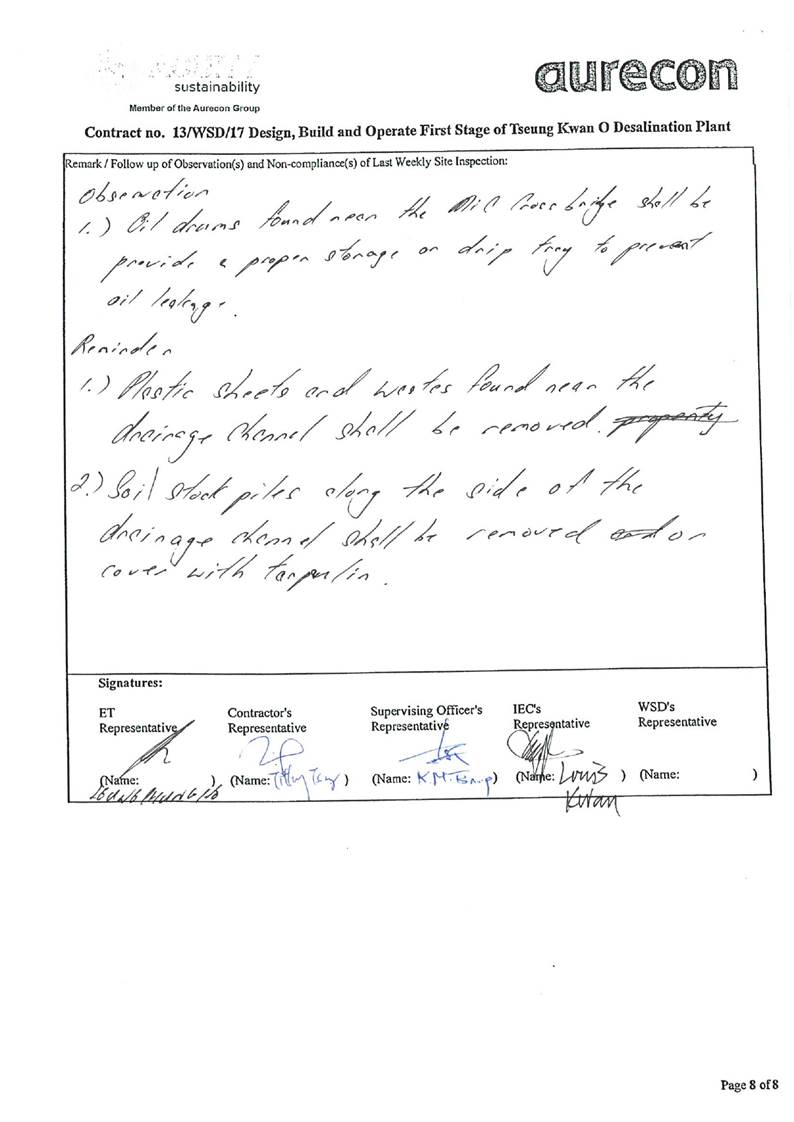 sustainability
aurecon
Member of the Aurecon Group
Contract no. 13/WSD/17 Design, Build and Operate First Stage of Tseung Kwan O Desalination Plant
Remark / Follow up of Observation(s) and Non-compliance(s) of Last Weekly Site Inspection:
Observation
1.) Oil drums found near the MiC Cross bridge shall be
provide a proper storage or drip tray to prevent
oil leakage.
Reminder
1.) Plastic sheets and wastes found near the
drainage channel shall be removed. property
2.) Soil stock piles along the side of the
drainage channel shall be removed and or
cover with tarpulin.
Signatures:
ET Representative
Contractor's Representative
Supervising Officer's Representative
IEC's Representative
WSD's Representative
(Name: )
(Name: )
(Name: K.M. )
(Name: Louis Kwan )
(Name: )
Page 8 of 8